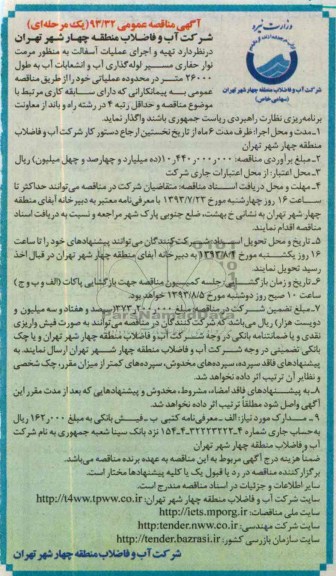 آگهی مناقصه عمومی ۹۳/۳۲ (یک مرحله‌ای)
شرکت آب و فاضلاب منطقه چهار شهر تهران
درنظردارد تهیه و اجرای عملیات آسفالت به منظور مرمت
نوار حفاری مسیر لوله‌گذاری آب و انشعابات آب به طول
۲۶۰۰۰ متر در محدوده عملیاتی خود را از طریق مناقصه
عمومی به پیمانکارانی که دارای سابقه کاری مرتبط با
موضوع مناقصه و حداقل رتبه ۴ در رشته راه و باند از معاونت
وزارت نیرو
شرکت آب و فاضلاب منطقه چهار شهر تهران
(سهامی خاص)
برنامه‌ریزی نظارت راهبردی ریاست جمهوری باشند واگذار نماید.
۱ـ مدت و محل اجرا: ظرف مدت ۶ ماه از تاریخ نخستین ارجاع دستور کار شرکت آب و فاضلاب
منطقه چهار شهر تهران
۲ـ مبلغ برآوردی مناقصه: ۱۰,۴۴۰,۰۰۰,۰۰۰ (ده میلیارد و چهارصد و چهل میلیون) ریال
۳ـ محل اعتبار: از محل اعتبارات جاری شرکت
۴ـ مهلت و محل دریافت اسناد مناقصه: متقاضیان شرکت در مناقصه می‌توانند حداکثر تا
ساعت ۱۶ روز چهارشنبه مورخ ۱۳۹۳/۷/۲۳ با معرفی‌نامه معتبر به دبیرخانه آبفای منطقه
چهار شهر تهران به نشانی خ بهشت، ضلع جنوبی پارک شهر مراجعه و نسبت به دریافت اسناد
مناقصه اقدام نمایند.
۵ـ تاریخ و محل تحویل اسناد: شرکت‌کنندگان می‌توانند پیشنهادهای خود را تا ساعت
۱۶ روز یکشنبه مورخ ۱۳۹۳/۸/۴ به دبیرخانه آبفای منطقه چهار شهر تهران در قبال اخذ
رسید تحویل نمایند.
۶ـ تاریخ و زمان بازگشایی: جلسه کمیسیون مناقصه جهت بازگشایی پاکات (الف و ب و ج)
ساعت ۱۰ صبح روز دوشنبه مورخ ۱۳۹۳/۸/۵ خواهد بود.
۷ـ مبلغ تضمین شرکت در مناقصه مبلغ ۳۷۳,۲۰۰,۰۰۰ (سیصد و هفتاد و سه میلیون و
دویست هزار) ریال می‌باشد که شرکت‌کنندگان در مناقصه می‌توانند به صورت فیش واریزی
نقدی و یا ضمانتنامه بانکی در وجه شرکت آب و فاضلاب منطقه چهار شهر تهران و یا چک
بانکی تضمینی در وجه شرکت آب و فاضلاب منطقه چهار شهر تهران ارسال نمایند. به
پیشنهادهای فاقد سپرده، سپرده‌های مخدوش، سپرده‌های کمتر از میزان مقرر، چک شخصی
و نظایر آن ترتیب اثر داده نخواهد شد.
۸ـ به پیشنهادهای فاقد امضاء، مشروط، مخدوش و پیشنهادهایی که بعد از مدت مقرر این
آگهی واصل شود مطلقاً ترتیب اثر داده نخواهد شد.
۹ـ مدارک مورد نیاز: الف ـ معرفی‌نامه کتبی ب ـ فیش بانکی به مبلغ ۱۶۲,۰۰۰ ریال
به حساب جاری شماره ۱۵۴-۴-۳۲۲۲۳۲۲۲ نزد بانک سینا شعبه جمهوری به نام شرکت
آب و فاضلاب منطقه چهار شهر تهران
ضمناً هزینه درج آگهی مربوط به این مناقصه به عهده برنده مناقصه می‌باشد.
برگزارکننده مناقصه در رد یا قبول یک یا کلیه پیشنهادها مختار است.
سایر اطلاعات و جزئیات در اسناد مناقصه مندرج است.
سایت شرکت آب و فاضلاب منطقه چهار شهر تهران: http://t4ww.tpww.co.ir
سایت ملی مناقصات: http://iets.mporg.ir
سایت شرکت مهندسی: http:tender.nww.co.ir
سایت سازمان بازرسی کشور: http://tender.bazrasi.ir
شرکت آب و فاضلاب منطقه چهار شهر تهران